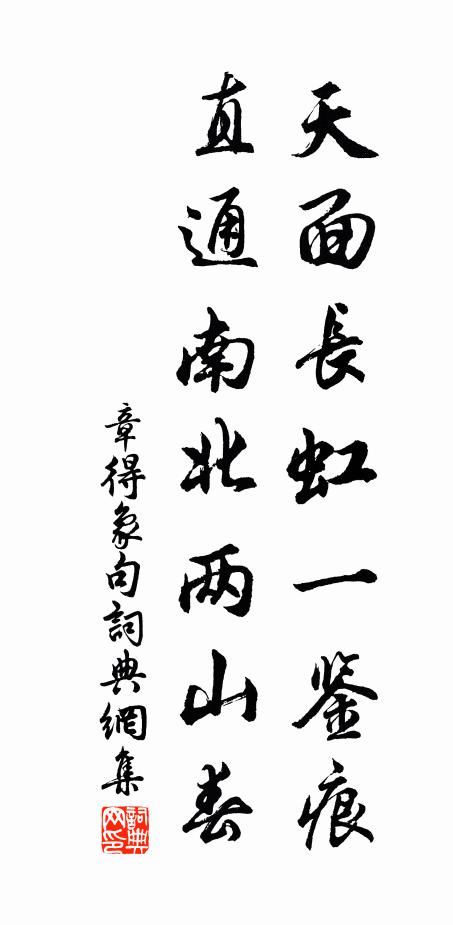 天面長虹一鉴痕
直通南北两山春
章得象句詞典網集
詞典网印